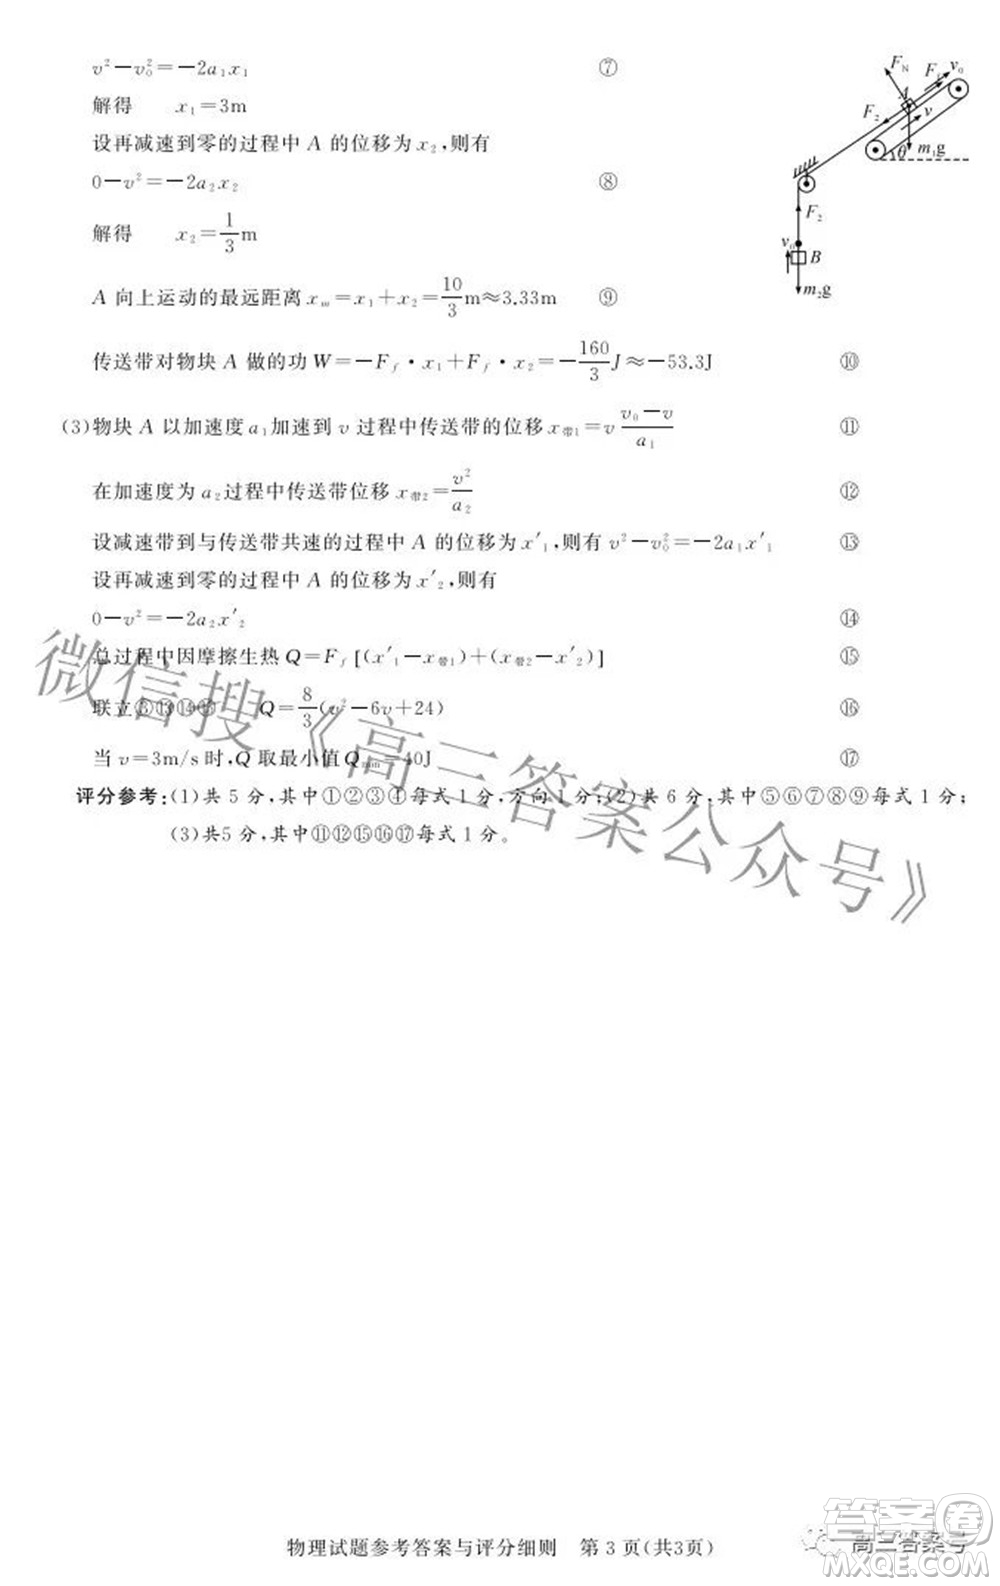 v²－v₀²＝－2a₁x₁ ⑦
解得 x₁＝3m
设再减速到零的过程中 A 的位移为 x₂,则有
0－v²＝－2a₂x₂ ⑧
解得 x₂＝1/3 m
A 向上运动的最远距离 xₘ＝x₁＋x₂＝10/3 m≈3.33m ⑨
传送带对物块 A 做的功 W＝－F_f·x₁＋F_f·x₂＝－160/3 J≈－53.3J ⑩
(3)物块 A 以加速度 a₁加速到 v 过程中传送带的位移 x带1＝v (v₀－v)/a₁ ⑪
在加速度为 a₂过程中传送带位移 x带2＝v²/a₂ ⑫
设减速带到与传送带共速的过程中 A 的位移为 x′₁,则有 v²－v₀²＝－2a₁x′₁ ⑬
设再减速到零的过程中 A 的位移为 x′₂,则有
0－v²＝－2a₂x′₂ ⑭
总过程中因摩擦生热 Q＝F_f[(x′₁－x带1)＋(x带2－x′₂)] ⑮
联立⑬⑭ Q＝8/3(v²－6v＋24) ⑯
当 v＝3m/s 时,Q 取最小值 Qmin＝40J ⑰
评分参考:(1)共 5 分,其中①②③④每式 1 分,方向 1 分;(2)共 6 分,其中⑤⑥⑦⑧⑨⑩每式 1 分;
(3)共5 分,其中⑪⑫⑮⑯⑰每式 1 分。
F_N
F_f
v₀
A
F₂
v
θ
m₁g
F₂
v₀
B
m₂g
微信搜《高三答案公众号》
物理试题参考答案与评分细则 第 3 页(共3页)
高三答案号
答案圈
MXQE.COM